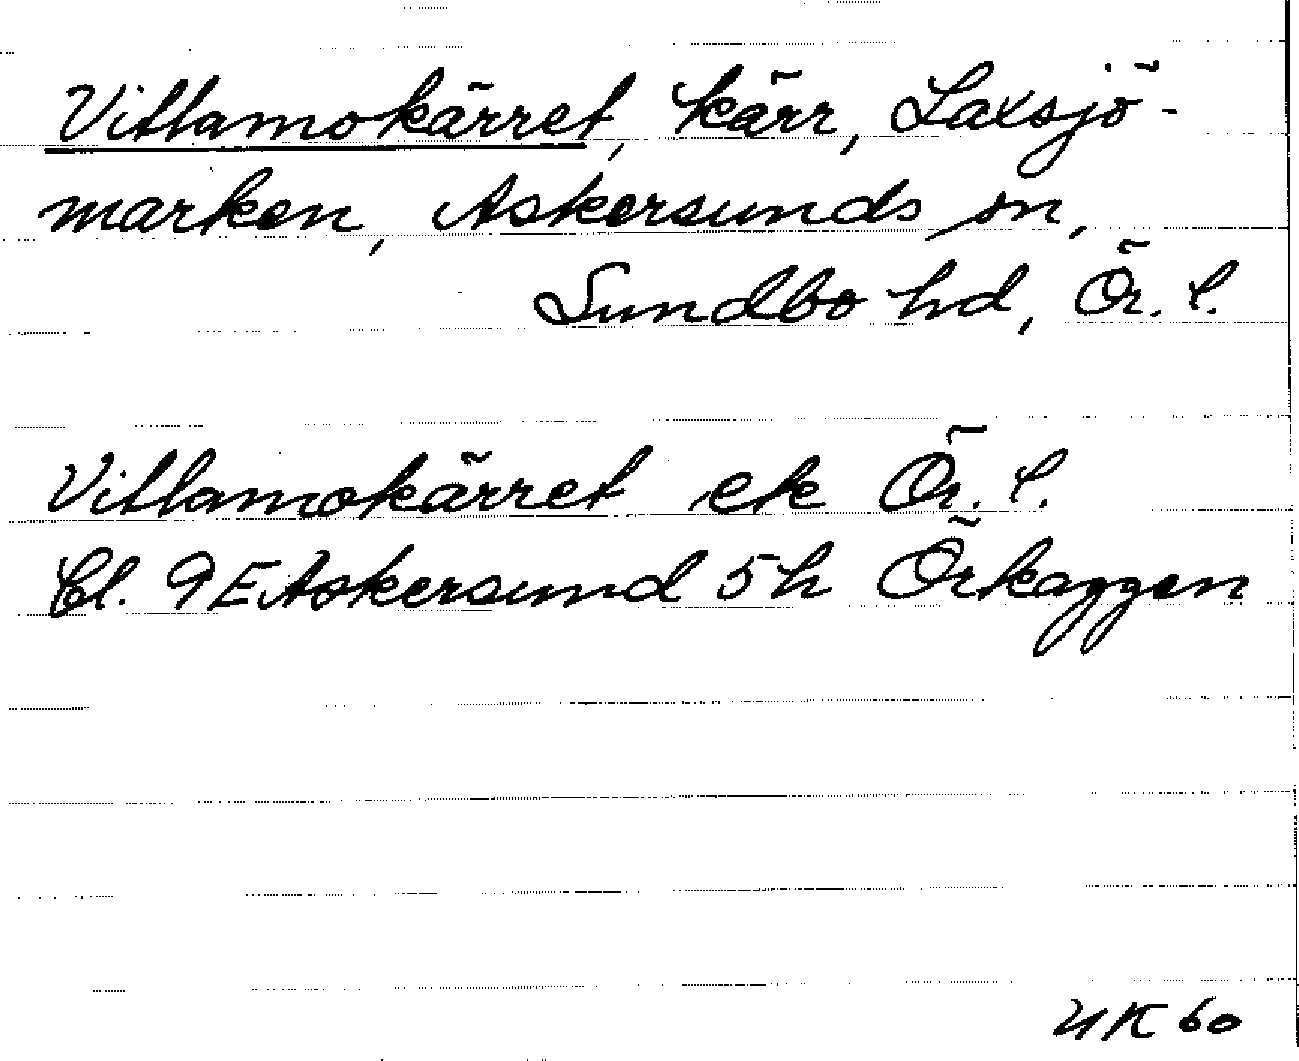 Vitlamokärret, kärr, Laxsjö-
marken, Askersunds sn,
Sundbo hd, Ör. l.
Vitlamokärret ek Ör. l.
Bl. 9E Askersund 5h Örkaggen
UK 60